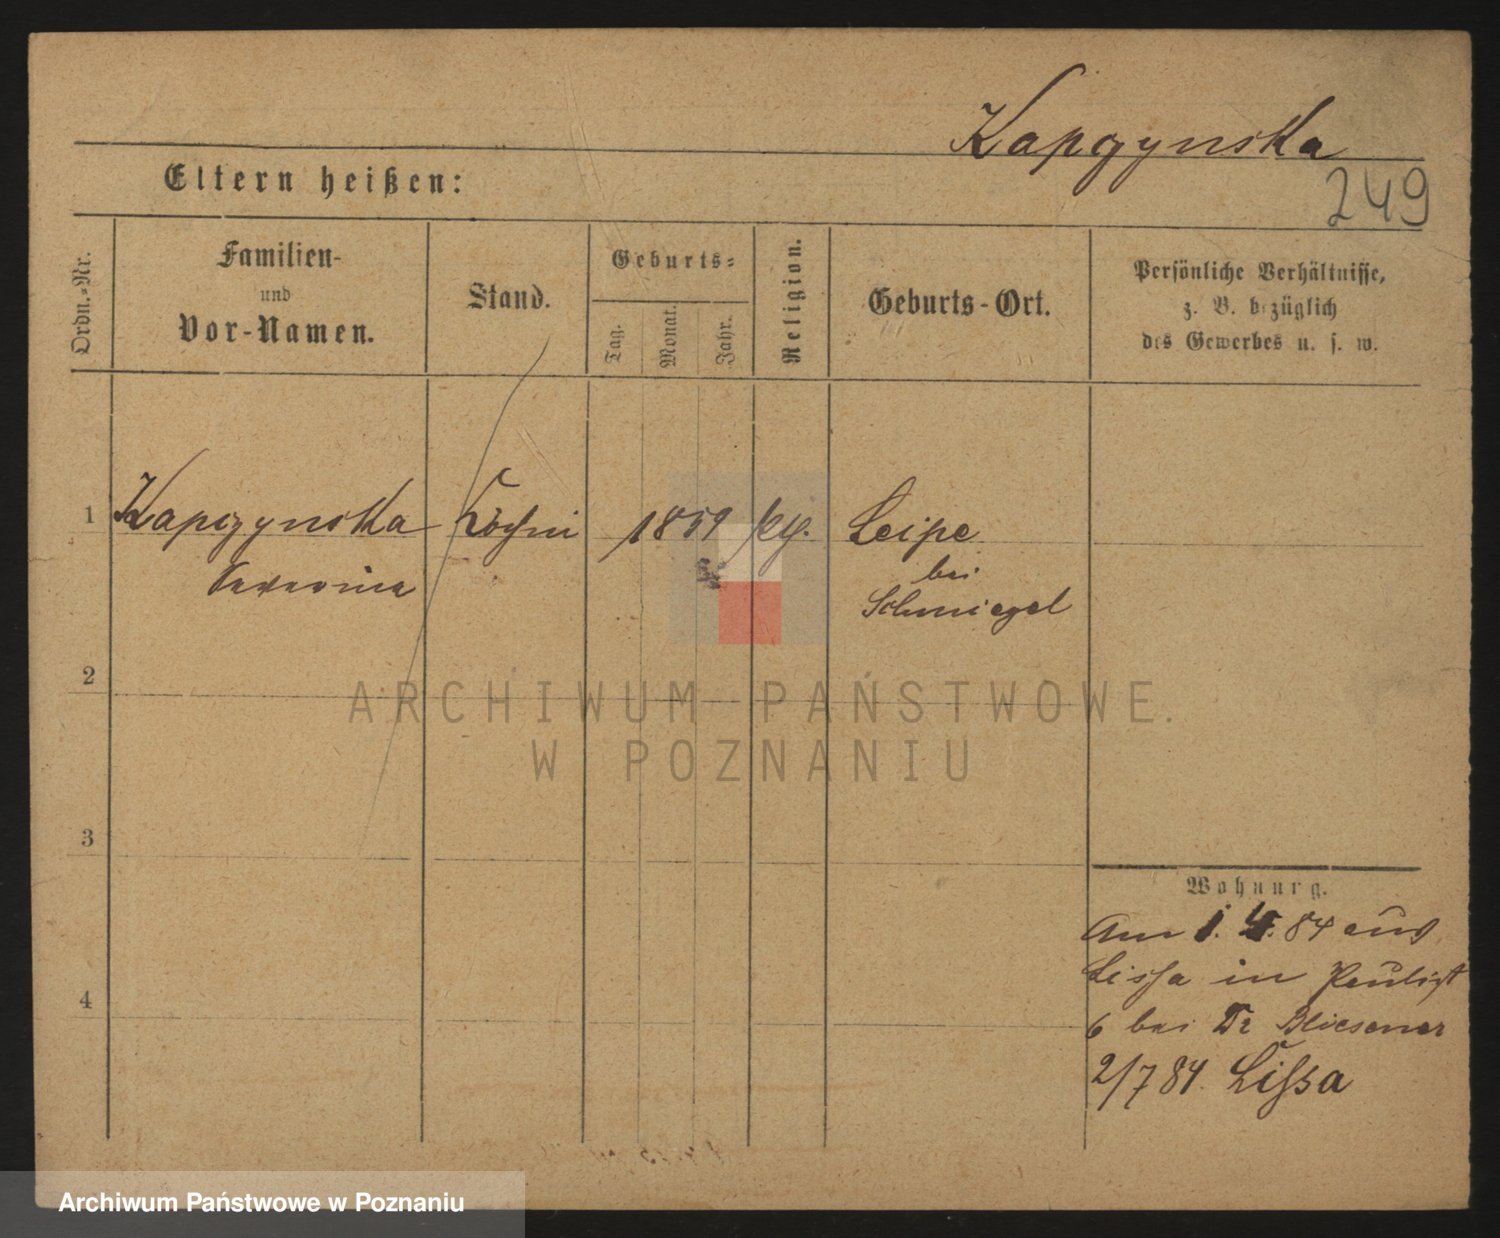 Kapczynska
249
Eltern heißen:
Ordn.-Nr.
Familien-
und
Vor-Namen.
Stand.
Geburts-
Tag.
Monat.
Jahr.
Religion.
Geburts-Ort.
Persönliche Verhältnisse,
z. B. bezüglich
des Gewerbes u. s. w.
1
Kapczynska
Köchin
1859
Leipe
bei
Schmiegel
2
3
4
Wohnung.
Am 1. 4. 84 aus
Lissa in
6 bei Dr Bliesener
2/7 84. Lissa
ARCHIWUM PAŃSTWOWE
W POZNANIU
Archiwum Państwowe w Poznaniu